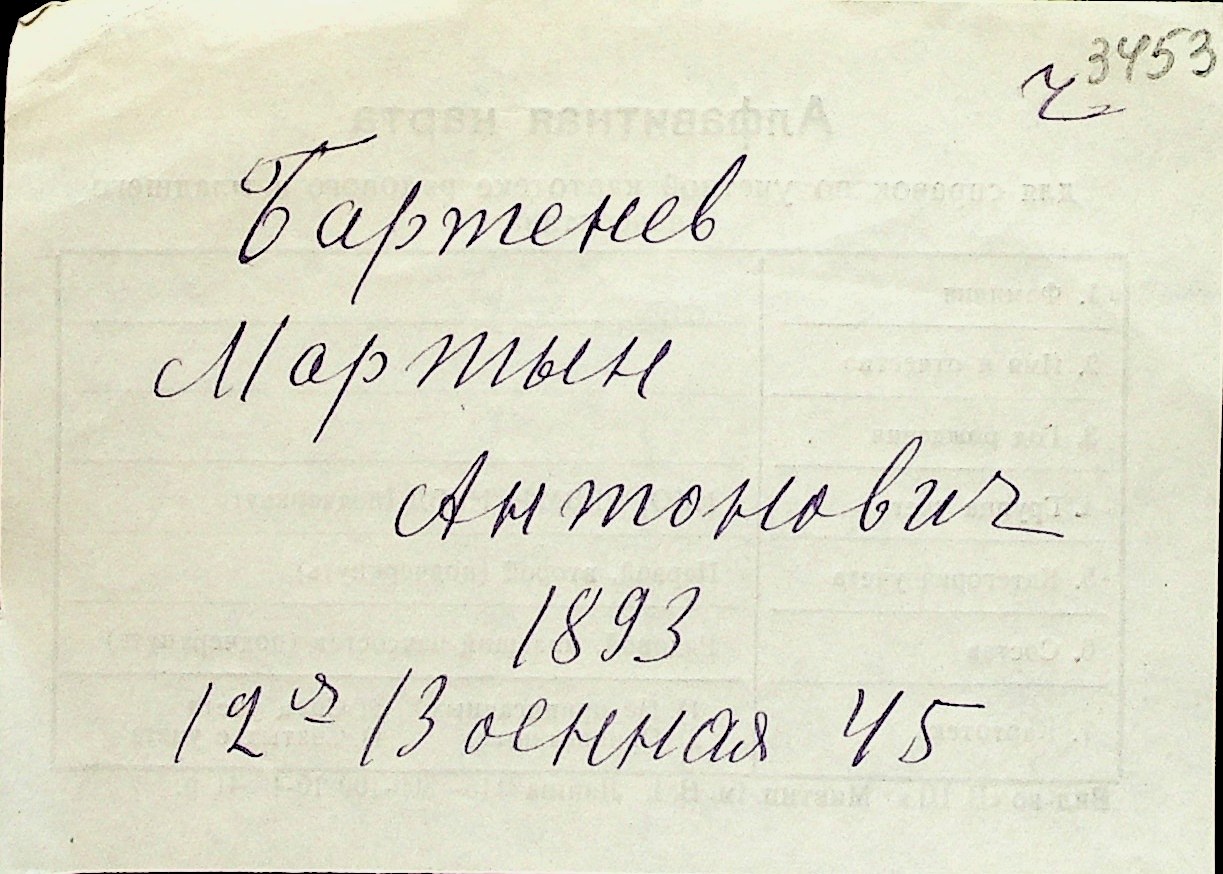 3453
ч
Бартенев
Мартын
Антонович
1893
12я Военная 45